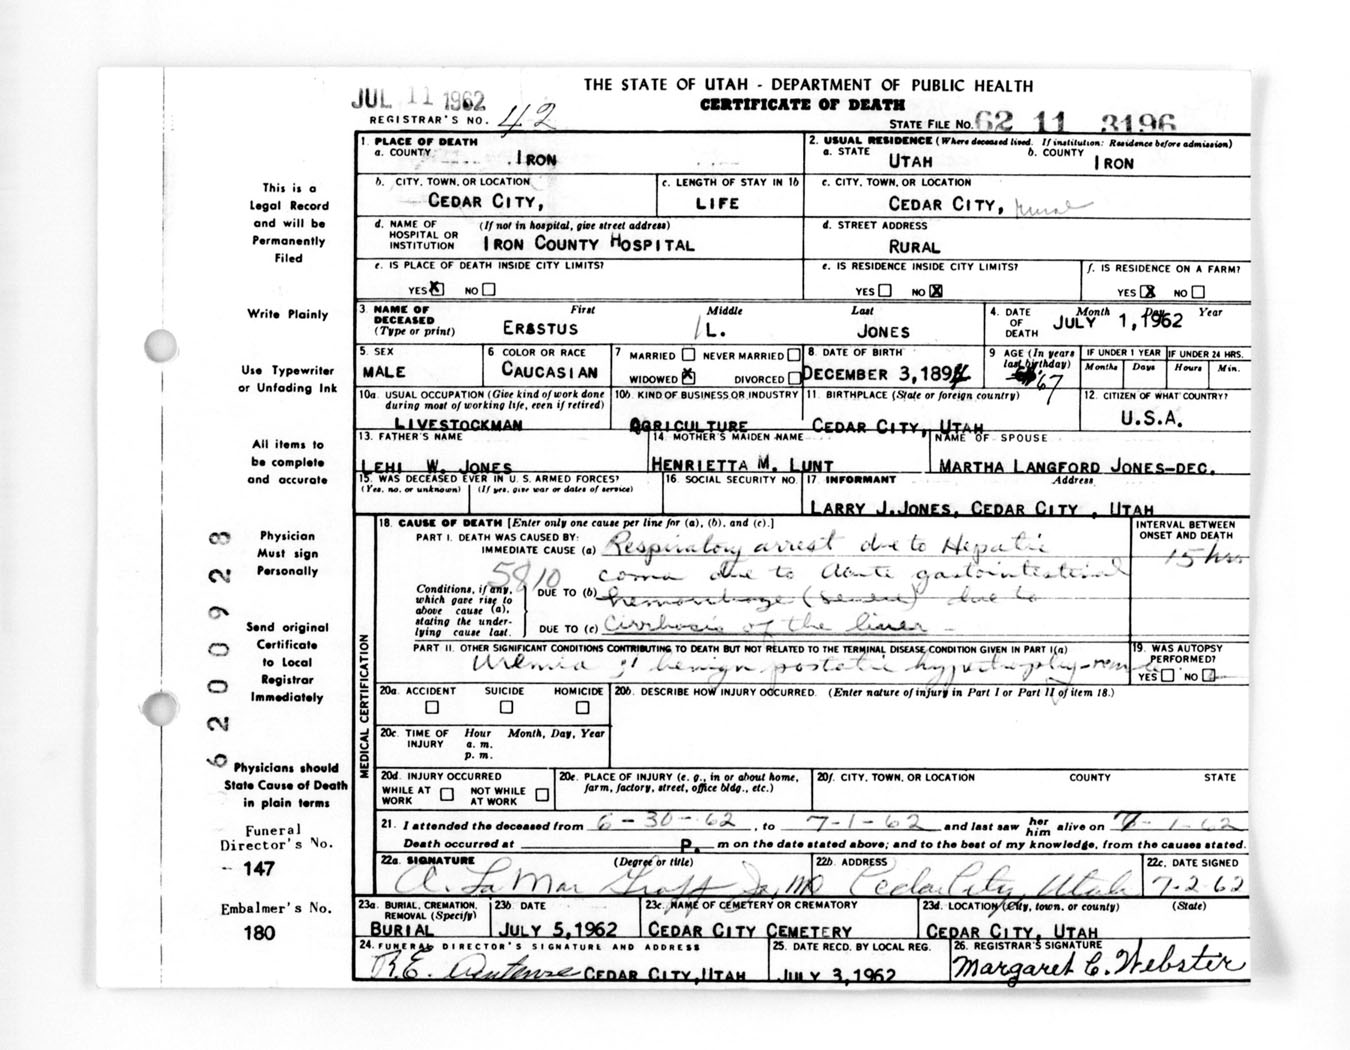 THE STATE OF UTAH - DEPARTMENT OF PUBLIC HEALTH
JUL 11 1962
CERTIFICATE OF DEATH
REGISTRAR'S NO. 42
STATE FILE No. 62 11 3196
1. PLACE OF DEATH
a. COUNTY IRON
2. USUAL RESIDENCE (Where deceased lived. If institution: Residence before admission)
a. STATE UTAH b. COUNTY IRON
b. CITY, TOWN, OR LOCATION CEDAR CITY,
c. LENGTH OF STAY IN 1b LIFE
c. CITY, TOWN, OR LOCATION CEDAR CITY, rural
d. NAME OF HOSPITAL OR INSTITUTION (If not in hospital, give street address) IRON COUNTY HOSPITAL
d. STREET ADDRESS RURAL
e. IS PLACE OF DEATH INSIDE CITY LIMITS? YES X NO
e. IS RESIDENCE INSIDE CITY LIMITS? YES NO X
f. IS RESIDENCE ON A FARM? YES X NO
3. NAME OF DECEASED (Type or print) First Middle Last
ERASTUS L. JONES
4. DATE OF DEATH Month Day Year
JULY 1, 1962
5. SEX MALE
6 COLOR OR RACE CAUCASIAN
7 MARRIED NEVER MARRIED
WIDOWED X DIVORCED
8. DATE OF BIRTH DECEMBER 3, 1894
9 AGE (In years last birthday) 67
IF UNDER 1 YEAR Months Days
IF UNDER 24 HRS. Hours Min.
10a. USUAL OCCUPATION (Give kind of work done during most of working life, even if retired) LIVESTOCKMAN
10b. KIND OF BUSINESS OR INDUSTRY AGRICULTURE
11. BIRTHPLACE (State or foreign country) CEDAR CITY, UTAH
12. CITIZEN OF WHAT COUNTRY? U.S.A.
13. FATHER'S NAME LEHI W. JONES
14. MOTHER'S MAIDEN NAME HENRIETTA M. LUNT
NAME OF SPOUSE MARTHA LANGFORD JONES-DEC.
15. WAS DECEASED EVER IN U.S. ARMED FORCES? (Yes, no, or unknown) (If yes, give war or dates of service)
16. SOCIAL SECURITY NO.
17. INFORMANT Address
LARRY J. JONES, CEDAR CITY, UTAH
18. CAUSE OF DEATH [Enter only one cause per line for (a), (b), and (c).]
INTERVAL BETWEEN ONSET AND DEATH
PART I. DEATH WAS CAUSED BY:
IMMEDIATE CAUSE (a) Respiratory arrest due to Hepatic
15 hrs
5810
coma due to acute gastointestinal
Conditions, if any, which gave rise to above cause (a), stating the underlying cause last.
DUE TO (b) hemorrhage (severe) due to
DUE TO (c) Cirrhosis of the liver -
PART II. OTHER SIGNIFICANT CONDITIONS CONTRIBUTING TO DEATH BUT NOT RELATED TO THE TERMINAL DISEASE CONDITION GIVEN IN PART I(a)
Uremia benign postatic hypertrophy
19. WAS AUTOPSY PERFORMED? YES NO
20a. ACCIDENT SUICIDE HOMICIDE
20b. DESCRIBE HOW INJURY OCCURRED. (Enter nature of injury in Part I or Part II of item 18.)
20c. TIME OF INJURY Hour Month, Day, Year
a. m.
p. m.
20d. INJURY OCCURRED
WHILE AT WORK NOT WHILE AT WORK
20e. PLACE OF INJURY (e. g., in or about home, farm, factory, street, office bldg., etc.)
20f. CITY, TOWN, OR LOCATION COUNTY STATE
21. I attended the deceased from 6-30-62, to 7-1-62 and last saw her him alive on 7-1-62
Death occurred at P. m on the date stated above; and to the best of my knowledge, from the causes stated.
22a. SIGNATURE (Degree or title)
A. LaMar Graff Jr, MD
22b. ADDRESS Cedar City, Utah
22c. DATE SIGNED 7-2-62
23a. BURIAL, CREMATION, REMOVAL (Specify) BURIAL
23b. DATE JULY 5, 1962
23c. NAME OF CEMETERY OR CREMATORY CEDAR CITY CEMETERY
23d. LOCATION (City, town, or county) (State)
CEDAR CITY, UTAH
24. FUNERAL DIRECTOR'S SIGNATURE AND ADDRESS
R.E. CEDAR CITY, UTAH
25. DATE RECD. BY LOCAL REG. JULY 3, 1962
26. REGISTRAR'S SIGNATURE
Margaret C. Webster
MEDICAL CERTIFICATION
This is a
Legal Record
and will be
Permanently
Filed
Write Plainly
Use Typewriter
or Unfading Ink
All items to
be complete
and accurate
Physician
Must sign
Personally
Send original
Certificate
to Local
Registrar
Immediately
Physicians should
State Cause of Death
in plain terms
Funeral
Director's No.
147
Embalmer's No.
180
6200923